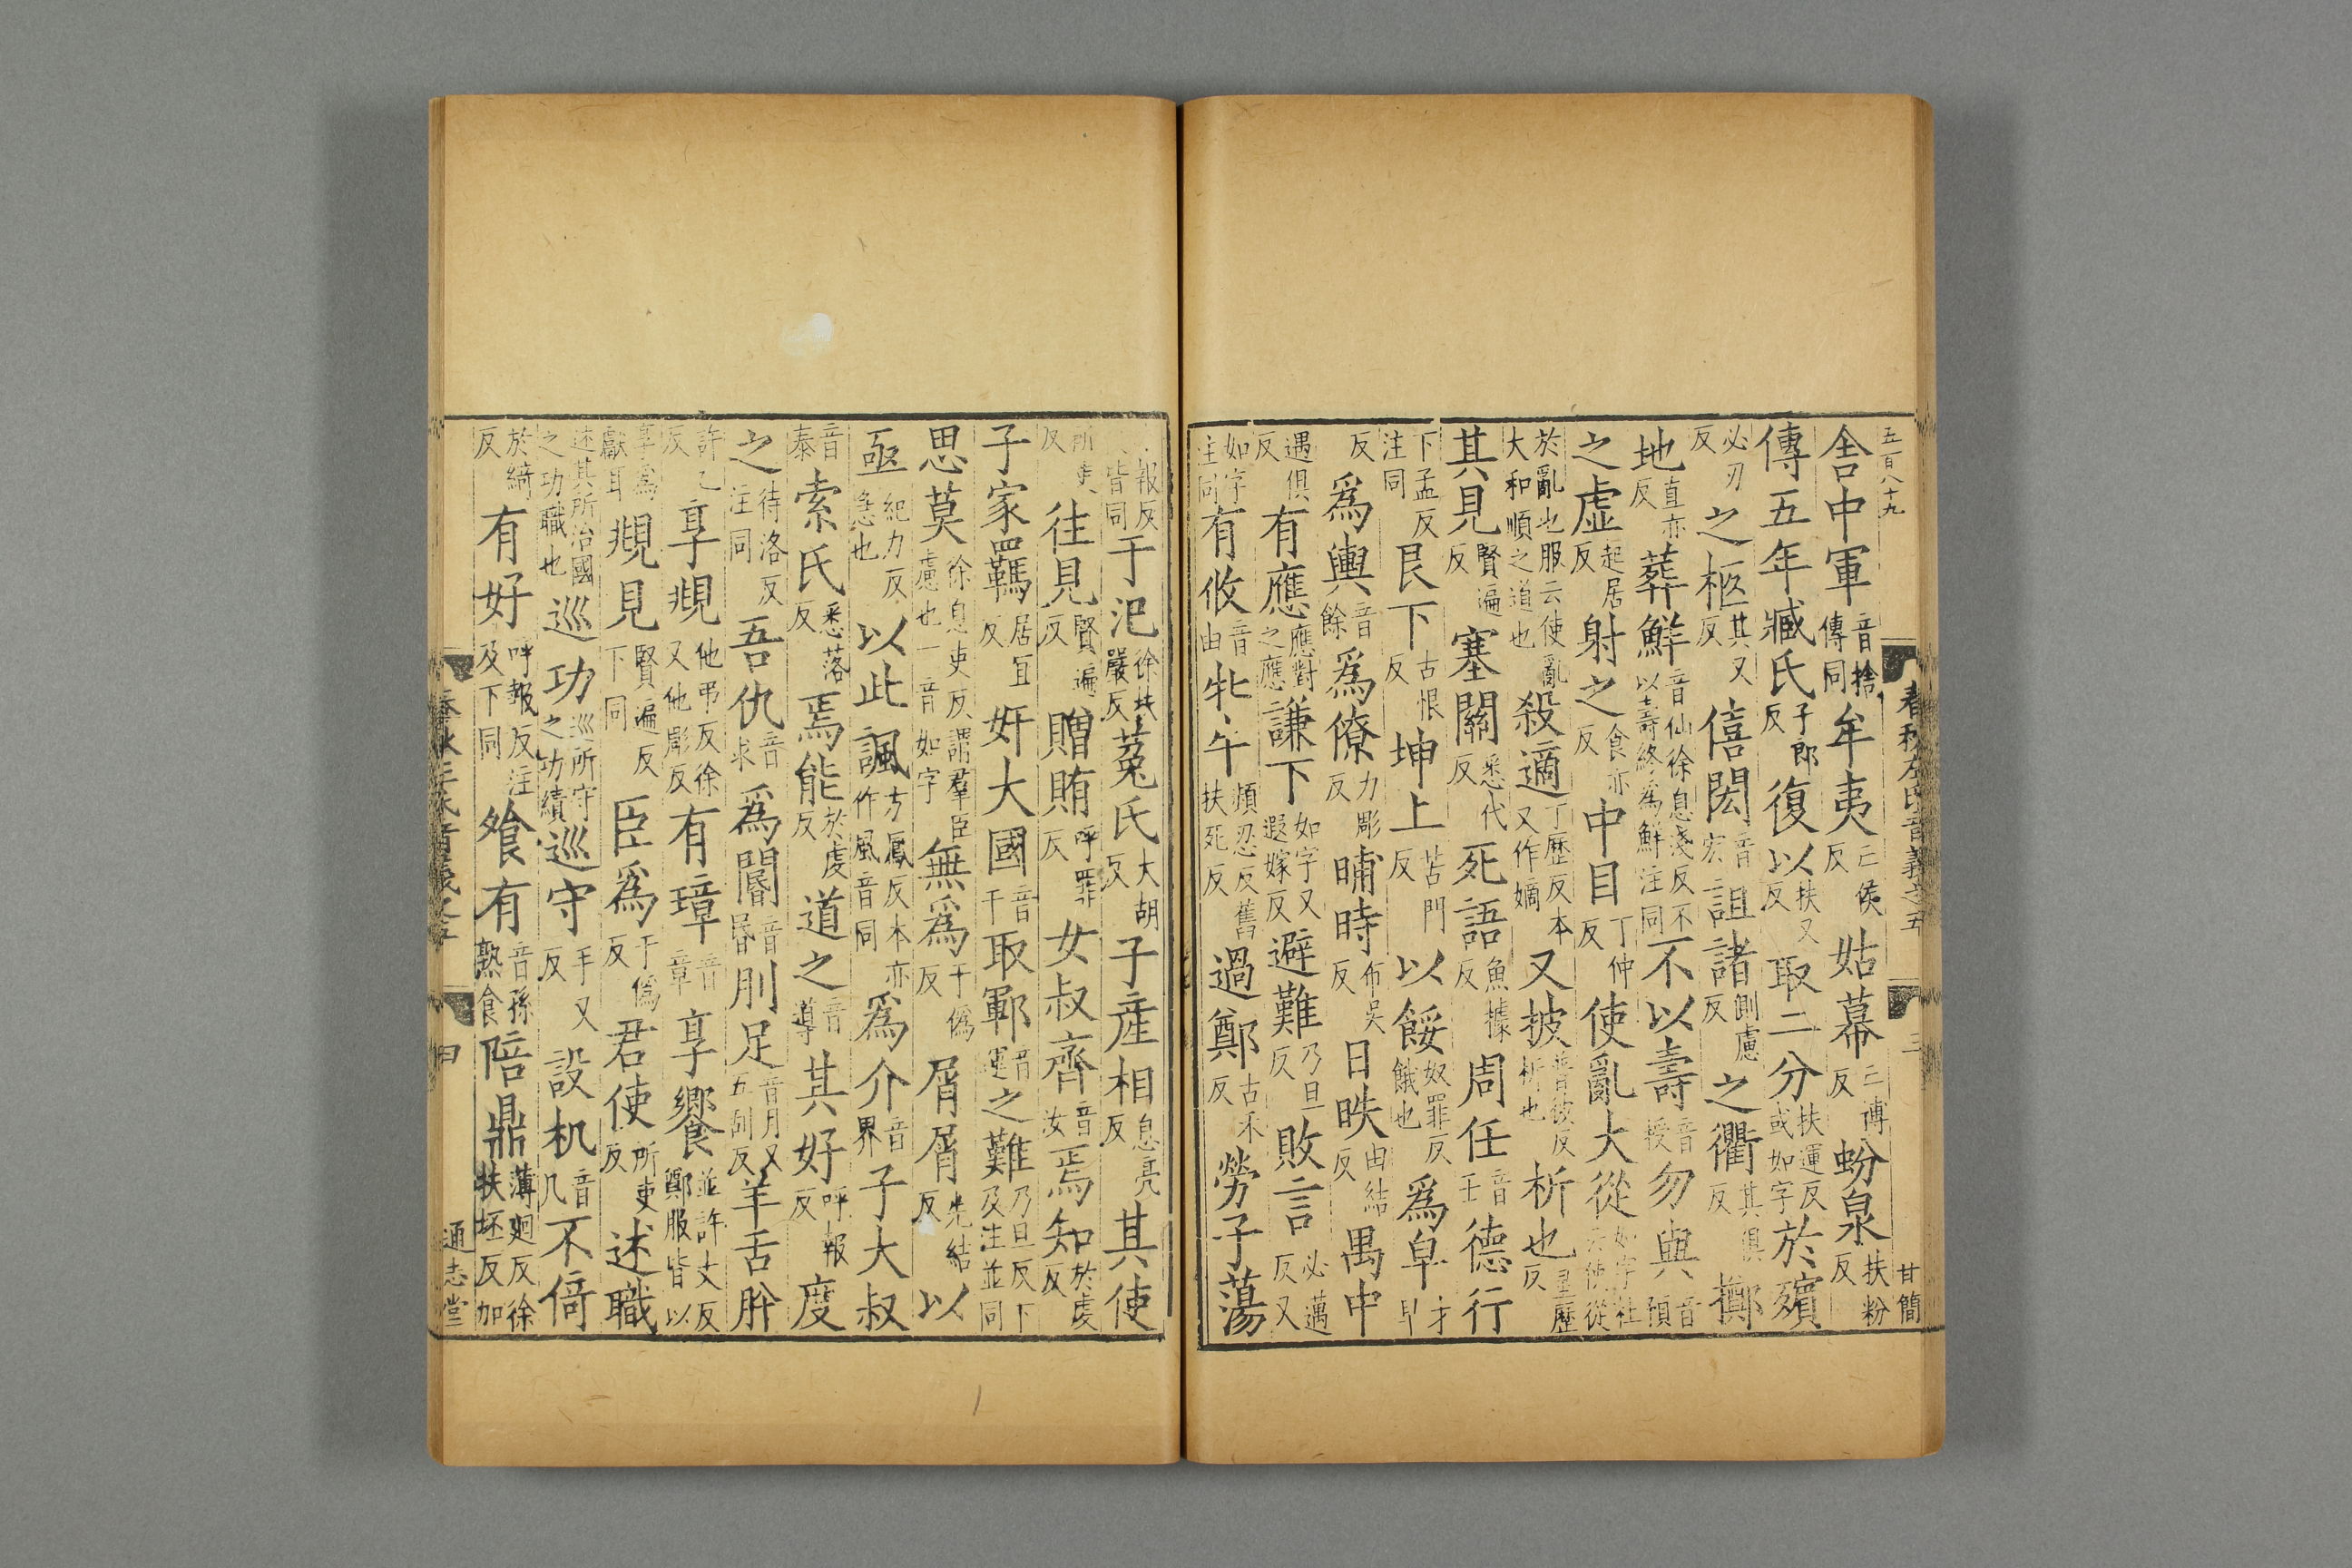 五百八十九
春秋左氏音義之五 三 甘簡
舍中軍音捨傳同牟夷亡侯反姑幕亡博反蚡泉扶粉反
傳五年臧氏子郎反復以扶又反取二分扶運反或如字於殯
必刃反之柩其又反僖閎音宏詛諸側慮反之衢其俱反擲
地直亦反葬鮮音仙徐息淺反不以壽終爲鮮注同不以壽音授勿與音預
之虛起居反射之食亦反中目丁仲反使亂大從如字
於亂也服云使亂大和順之道也殺適丁歷反本又作嫡又披普彼反析也析也星歷反
其見賢遍反塞關悉代反死語魚據反周任音壬德行
下孟反注同艮下古恨反坤上苦門反以餒奴罪反餓也爲皁才早
反爲輿音餘爲僚力彫反晡時布吳反日昳由結反禺中
遇俱反有應應對之應謙下如字又遐嫁反避難乃旦反敗言必邁反又
如字注同有攸音由牝牛頻忍反舊扶死反過鄭古禾反勞子蕩
報反皆同于氾徐扶嚴反菟氏大胡反子產相息亮反其使
所吏反往見賢遍反贈賄呼罪反女叔齊音汝焉知於虔反
子家羈居宜反奸大國音干取鄆音運之難乃旦反下及注並同
思莫徐息吏反謂羣臣慮也一音如字無爲于僞反屑屑先結反以
亟紀力反急也以此諷方鳳反本亦作風音同爲介音界子大叔
音泰索氏悉落反焉能於虔反道之音導其好呼報反度
之待洛反注同吾仇音求爲閽音昏刖足音月又五刮反羊舌肸
許乙反享覜他弔反徐又他彫反有璋音章享饗並許丈反鄭服皆以
享爲獻耳覜見賢遍反下同臣爲于僞反君使所吏反述職
述其所治國之功職也巡功巡所守之功績巡守手又反設机音几不倚
於綺反有好呼報反注及下同飧有音孫熟食陪鼎薄廻反徐扶坯反加
通志堂